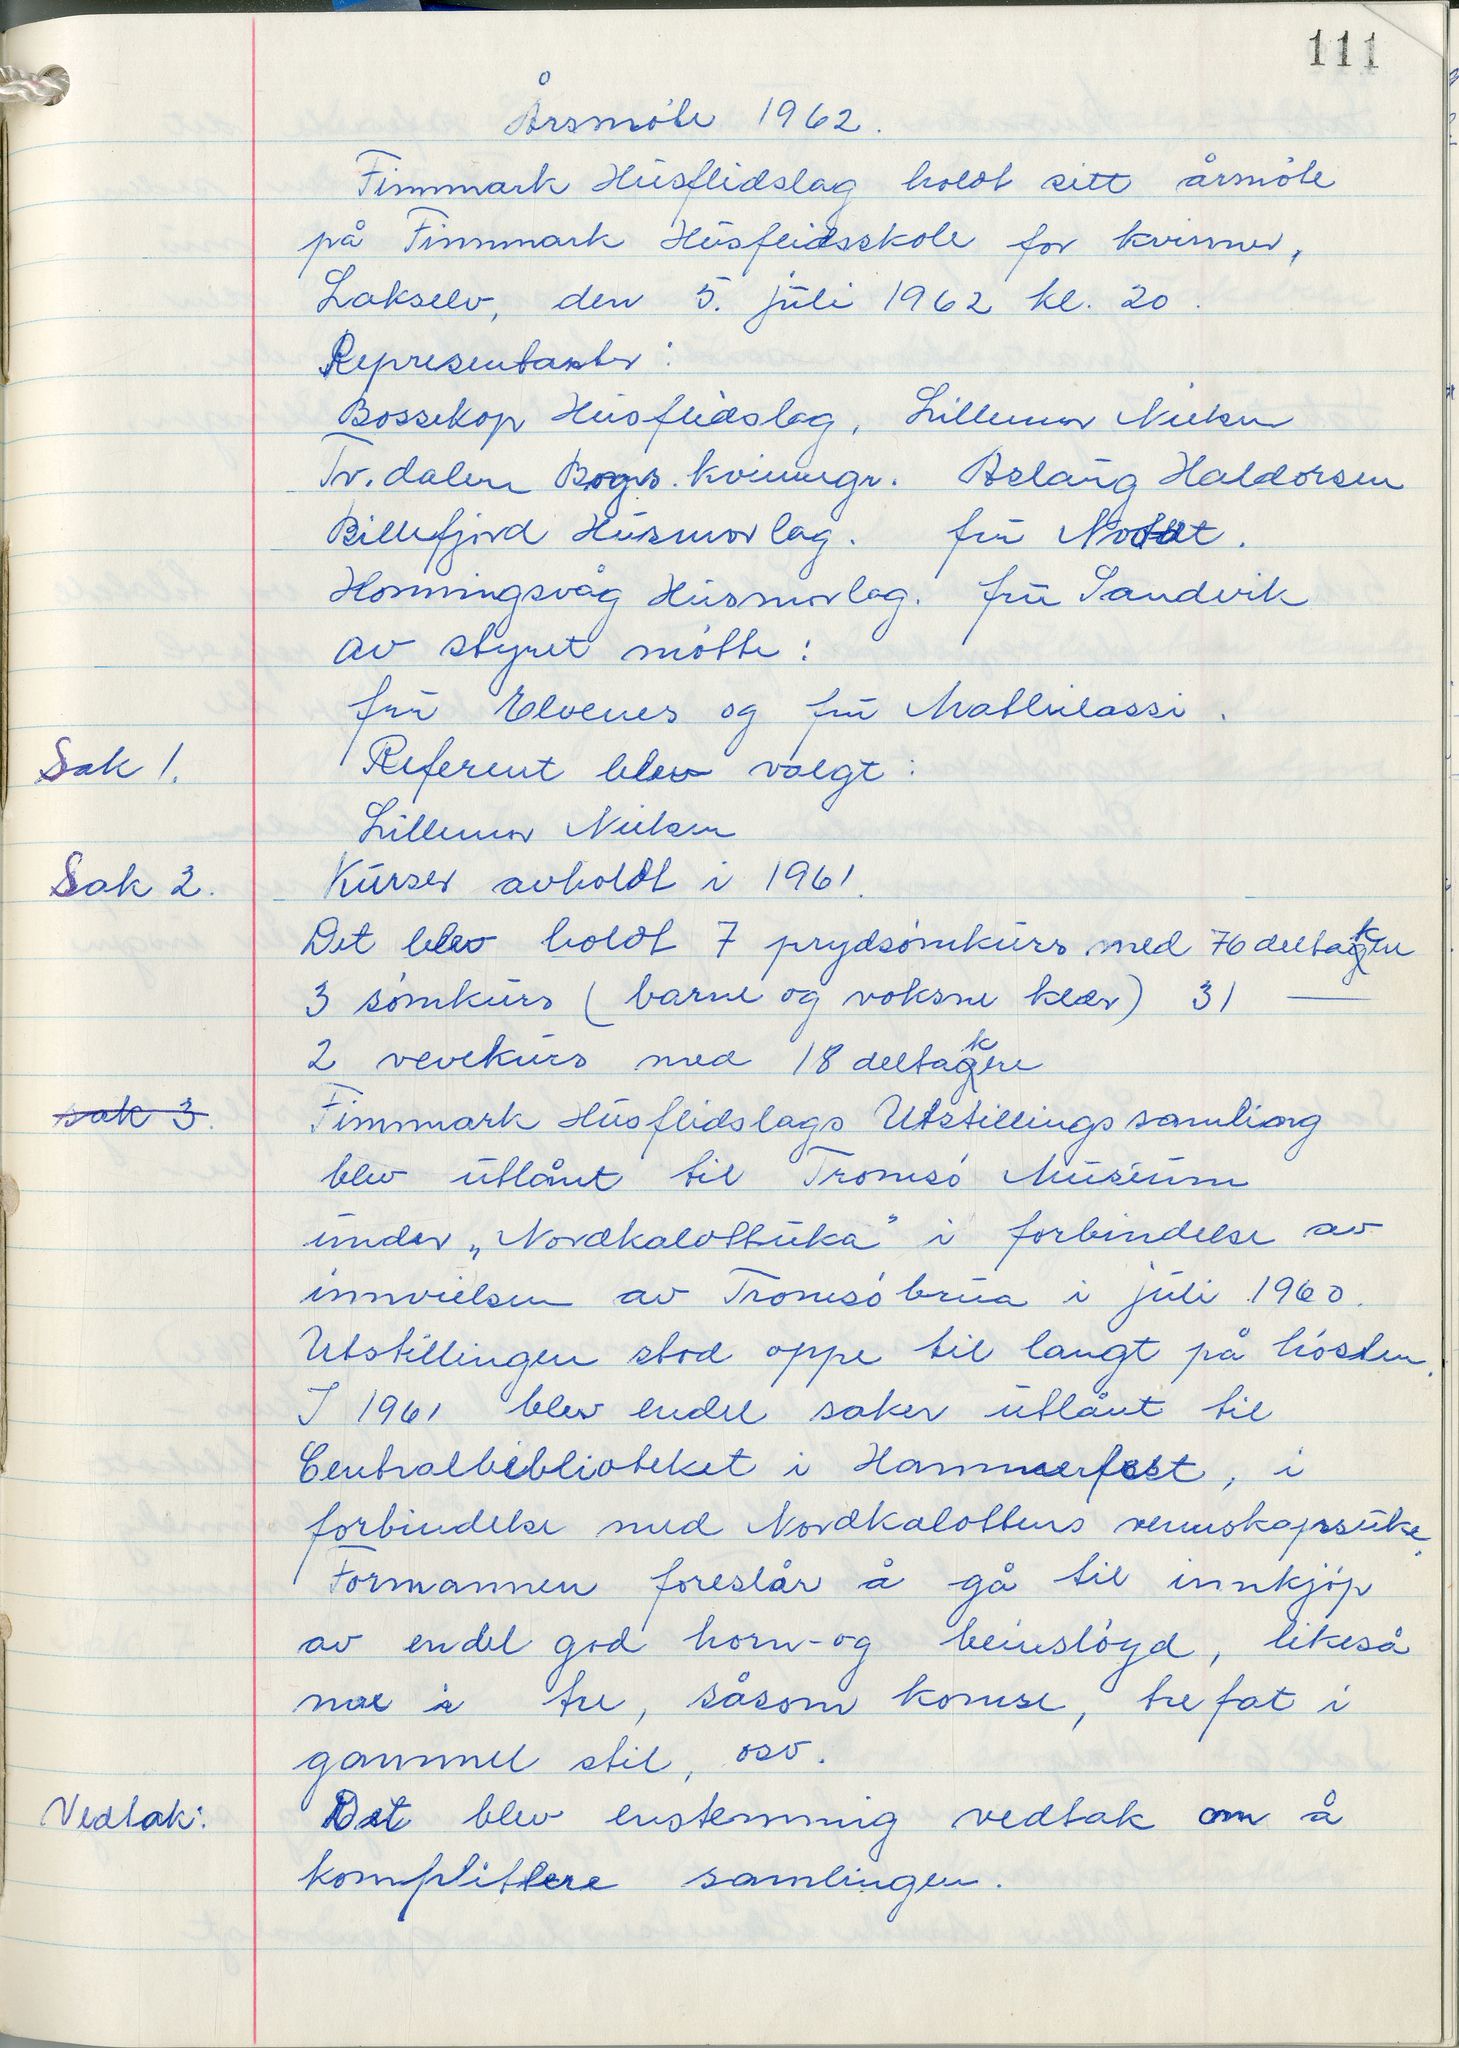 111
Årsmöte 1962.
Finnmark Husflidslag holdt sitt årmöte
på Finnmark Husfeidsskole for kvinner,
Lakselv, den 5. juli 1962 kl. 20.
Representanter:
Bossekop Husflidslag, Lillemor Nielsen
Tv.dalen Bogs. kvinnegr. Aslaug Haldorsen
Billefjord Husmorlag. fru
Honningsvåg Husmorlag. fru Sandvik
av styret mötte:
fru Elvenes og fru Mathilassi.
Sak 1. Referent blev valgt:
Lillemor Nielsen
Sak 2. Kurser avholdt i 1961.
Det blev holdt 7 prydsömkurs med 76 deltakere
3 sömkurs (barne og voksne klær) 31 —
2 vevekurs med 18 deltakere
sak 3. Finnmark Husflidslags Utstillingssamling
blev utlånt til Tromsö Museum
under „Nordkalottuka” i forbindelse av
innvielsen av Tromsöbrua i juli 1960.
Utstillingen stod oppe til langt på hösten.
I 1961 blev endel saker utlånt til
Centralbiblioteket i Hammerfest, i
forbindelse med Nordkalottens vennskapsuke.
Formannen foreslår å gå til innkjöp
av endel god horn- og beinslöyd, likeså
noe i tre, såsom komse, trefat i
gammel stil, osv.
Vedtak: Det blev enstemmig vedtak om å
komplittere samlingen.